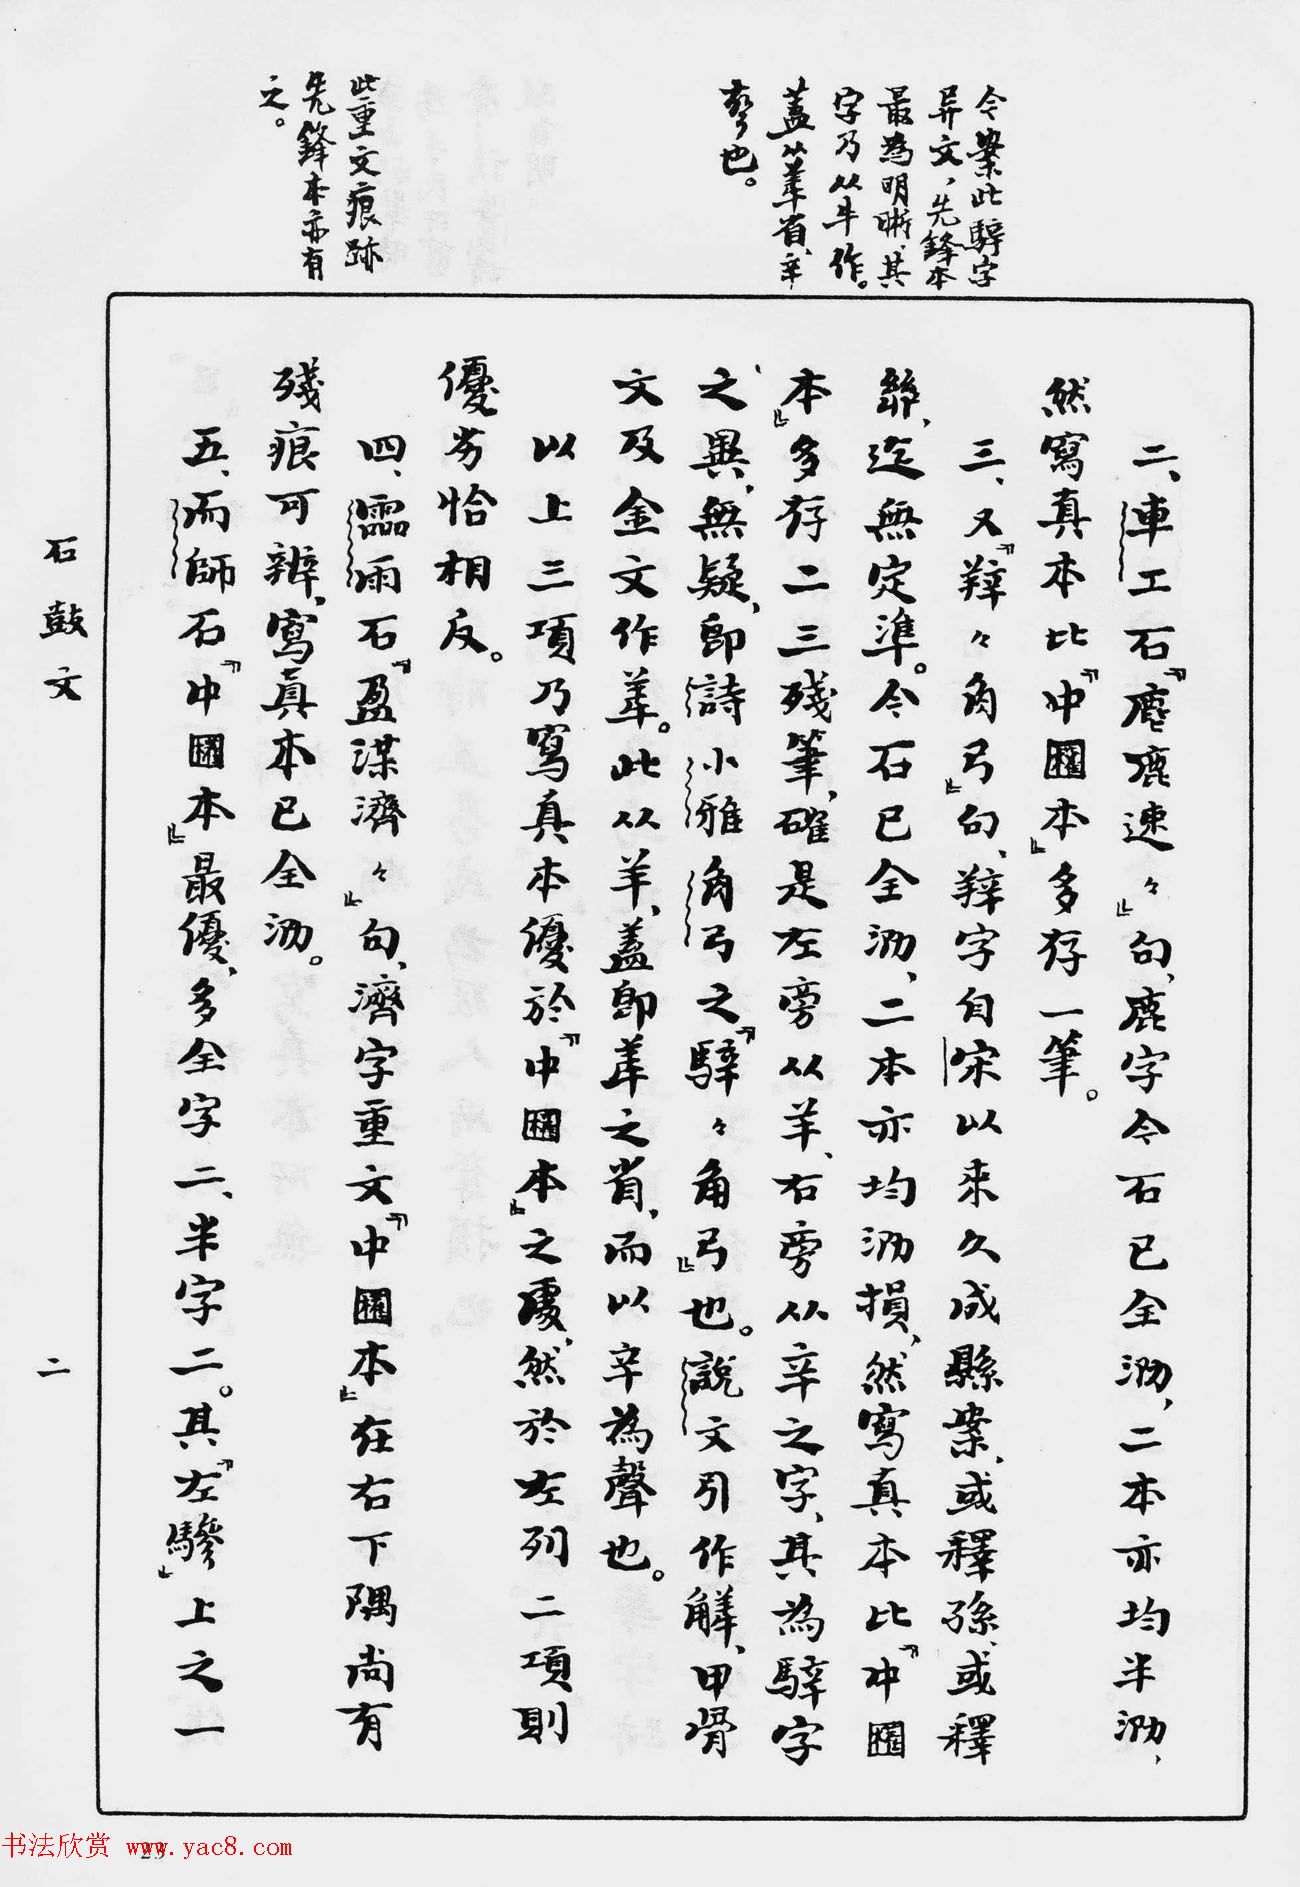 今案此騂字
异文，先鋒本
最為明晰，其
字乃从牛作。
蓋从省、辛
聲也。
此重文痕跡
先鋒本亦有
之。
二、車工石『麀鹿速々』句，鹿字今石已全泐，二本亦均半泐，
然寫真本比『中國本』多存一筆。
三、又『々角弓』句，字自宋以來久成縣案，或釋孫、或釋
，迄無定準。今石已全泐，二本亦均泐損，然寫真本比『中國
本』多存二三殘筆，確是左旁从羊、右旁从辛之字，其為騂字
之異，無疑，即詩小雅角弓之『騂々角弓』也。說文引作觲，甲骨
文及金文作。此从羊，蓋即之省，而以辛為聲也。
以上三項乃寫真本優於『中國本』之處，然於左列二項則
優劣恰相反。
四、霝雨石『盈渫濟々』句，濟字重文『中國本』在右下隅尚有
殘痕可辨，寫真本已全泐。
五、而師石『中國本』最優，多全字二、半字二。其『左驂』上之一
石鼓文
二
23
书法欣赏 www.yac8.com